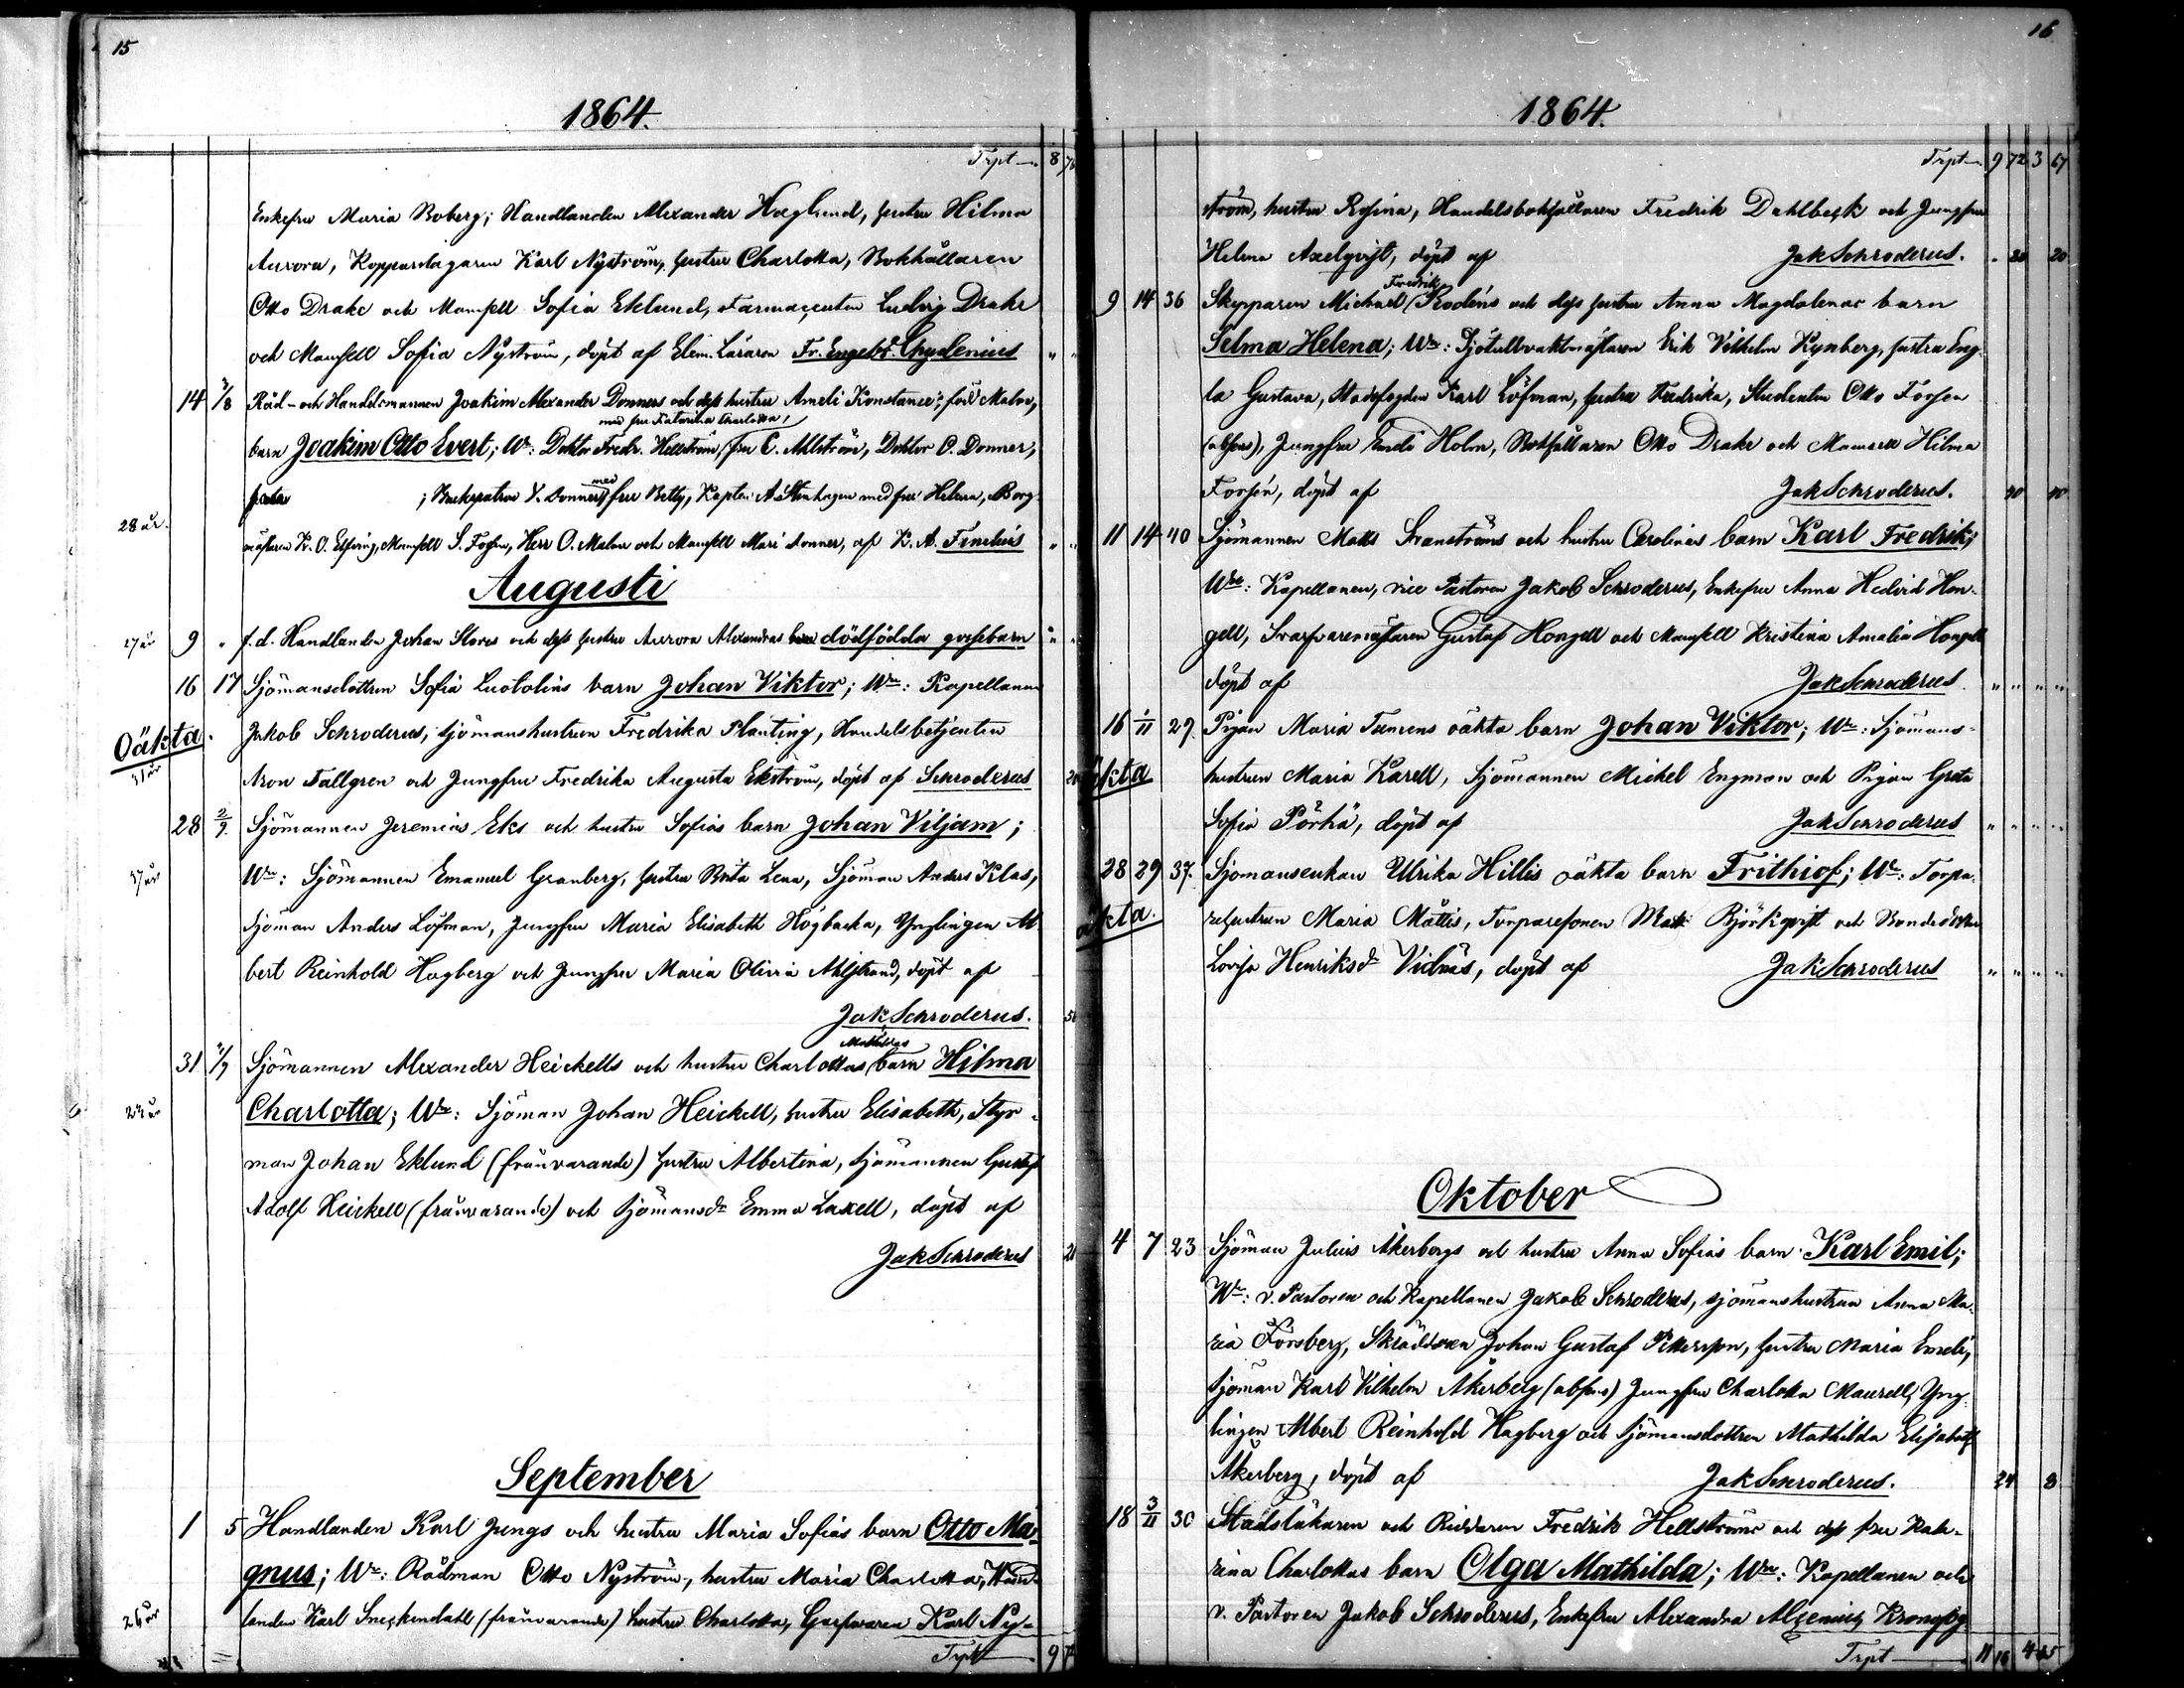 15
1864.
Trpt 8
Enkefru Maria Boberg; Handlanden Alexander Höglund, hustru Hilma
Aurora, Kopparslagaren Karl Nyström, hustru Charlotta, Bokhållaren
Otto Drake och Mamsell Sofia Eklund, Farmaceuten Ludvig Drake
och Mamsell Sofia Nyström, döpt af Elem. Läraren Fr. Engelb. Chydenius
14 7/8 Råd- och Handelsmannen Joakim Alexander Donners och dess hustru Ameli Konstance, född Malm,
med fru Katarina Charlotta
barn Joakim Otto Evert; Wn: Doktor Fredr. Hellström, fru C. Ahlström, Doktor O. Donner,
; Brukspatron Donner med fru Betty, Kapten A Stenhagen med fru Helena, Borg-
28 år.
mästaren K. O. Elfving, Mamsell S. Forsen, Herr O. Malm och Mamsell Mari Donner, af K. A. Fenelius
Augusti
27 år 9 " f.d. Handlanden Johan Stores och dess hustru Aurora Alexandras dödfödda gossebarn
16 17 Sjömansdottren Sofia Luotolins barn Johan Viktor; Wn: Kapellanen
Oäkta. Jakob Schroderus, sjömanshustrun Fredrika Planting, Handelsbetjenten
31 år Aron Tallgren och Jungfru Fredrika Augusta Ekström, döpt af Schroderus 20
28 2/9 Sjömannen Jeremias Eks och hustru Sofias barn Johan Viljam;
37 år Wn: Sjömannen Emanuel Granberg, hustru Brita Lena, Sjöman Anders Klas,
Sjöman Anders Löfman, Jungfru Maria Elisabeth Högbacka, Ynglingen Al
bert Reinhold Hagberg och Jungfru Maria Olivia Ahlstrand, döpt af
Jak Schroderus.
Mathildas
31 4/9 Sjömannen Alexander Heickells och hustru Charlottas barn Hilma
23 år Charlotta; Wn: Sjöman Johan Heickell, hustru Elisabeth, Styr-
man Johan Eklund (frånvarande) hustru Albertina, sjömannen Gustaf
Adolf Heickell (frånvarande) och sjömansdr Emma Laxell, döpt af
Jak Schroderus
September
1 5 Handlanden Karl Jungs och hustru Maria Sofias barn Otto Ma-
gnus; Wn: Rådman Otto Nyström, hustru Maria Charlotta, Hand-
26 år landen Karl Sneckendahl (frånvarande) hustru Charlotta, Garfvaren Karl Ny-
Trpt 9
16
1864.
Trpt 9 72 3 67
ström, hustru Rosina, Handelsbokhållaren Fredrik Dahlbeck och Jungfru
Helena Axelqvist, döpt af Jak Schroderus. 20 20
Fredrik
9 14 36 Skepparen Michael Rodéns och dess hustru Anna Magdalenas barn
Selma Helena; Wn: Sjötullvaktmästaren Erik Vilhelm Rynberg, hustru Eng
la Gustava, Stadsfogden Karl Löfman, hustru Fredrika, Studenten Otto Forsen
(absens), Jungfru Emeli Holm, Bokhållaren Otto Drake och Mamsell Hilma
Forsén, döpt af Jak Schroderus. 40 40
11 14 40 Sjömannen Matts Svanströms och hustru Carolinas barn Karl Fredrik;
Wn: Kapellanen, vice Pastoren Jakob Schroderus, Enkefru Anna Hedvid Hon-
gell, Svarfvaremästaren Gustaf Hongell och Mamsell Kristina Amalia Hongell
döpt af Jak Schroderus " " " "
16 1/11 29. Pigan Maria Tamens oäkta barn Johan Viktor; Wn: Sjömans-
äkta hustrun Maria Karell, Sjömannen Michel Engman och Pigan Greta
Sofia Pörhä, döpt af Jak Schroderus " " " "
28 29 37. Sjömansenkan Ulrika Hillis oäkta barn Frithiof; Wn: Torpa-
äkta. rehustrun Maria Mattis, Torparesonen Matt Björkqvist och Bondedottr
Lovisa Henriksdr Vidnäs, döpt af Jak Schroderus " " " "
Oktober
4 7 23 Sjöman Julius Åkerbergs och hustru Anna Sofias barn Karl Emil;
Wn: v. Pastoren och Kapellanen Jakob Schroderus, sjömanshustrun Anna Ma-
ria Forsberg, Skräddaren Johan Gustaf Pettersson, hustru Maria Emeli,
sjöman Karl Vilhelm Åkerberg (absens) Jungfru Charlotta Maurell, Yng-
lingen Albert Reinhold Hagberg och Sjömansdottren Mathilda Elisabeth
Åkerberg, döpt af Jak Schroderus. 24 8
18 3/11 30 Stadsläkaren och Riddaren Fredrik Hellströms och dess fru Kata-
rina Charlottas barn Olga Mathilda; Wn: Kapellanen och
v. Pastoren Jakob Schroderus, Enkefru Alexandra Alcenius, Kronofog
Trpt 11 16 4